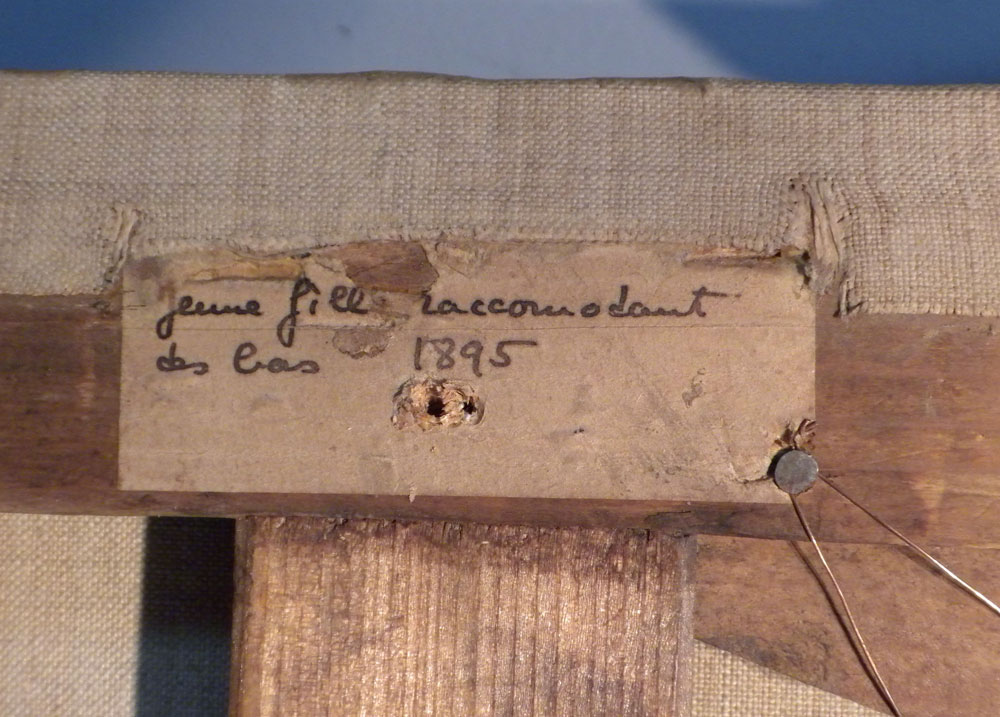 jeune fille raccomodant
des bas 1895